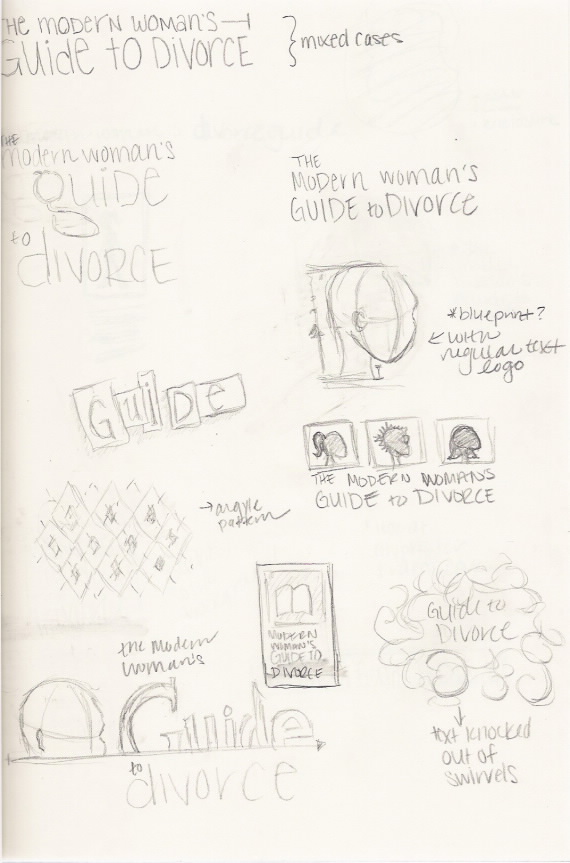 THE MODERN WOMAN'S
GUIDE to DIVORCE
mixed cases
THE
modern woman's
GUIDE
to
DIVORCE
THE
MODern woman's
GUIDE to DIvorce
*blueprint?
with
regular text
logo
GuiDe
THE MODERN WOMAN'S
GUIDE to DIVORCE
argyle
pattern
MODERN
WOMAN'S
GUIDE TO
DIVORCE
Guide to
Divorce
text knocked
out of
swirrels
the Modern
Woman's
Guide
to
divorce